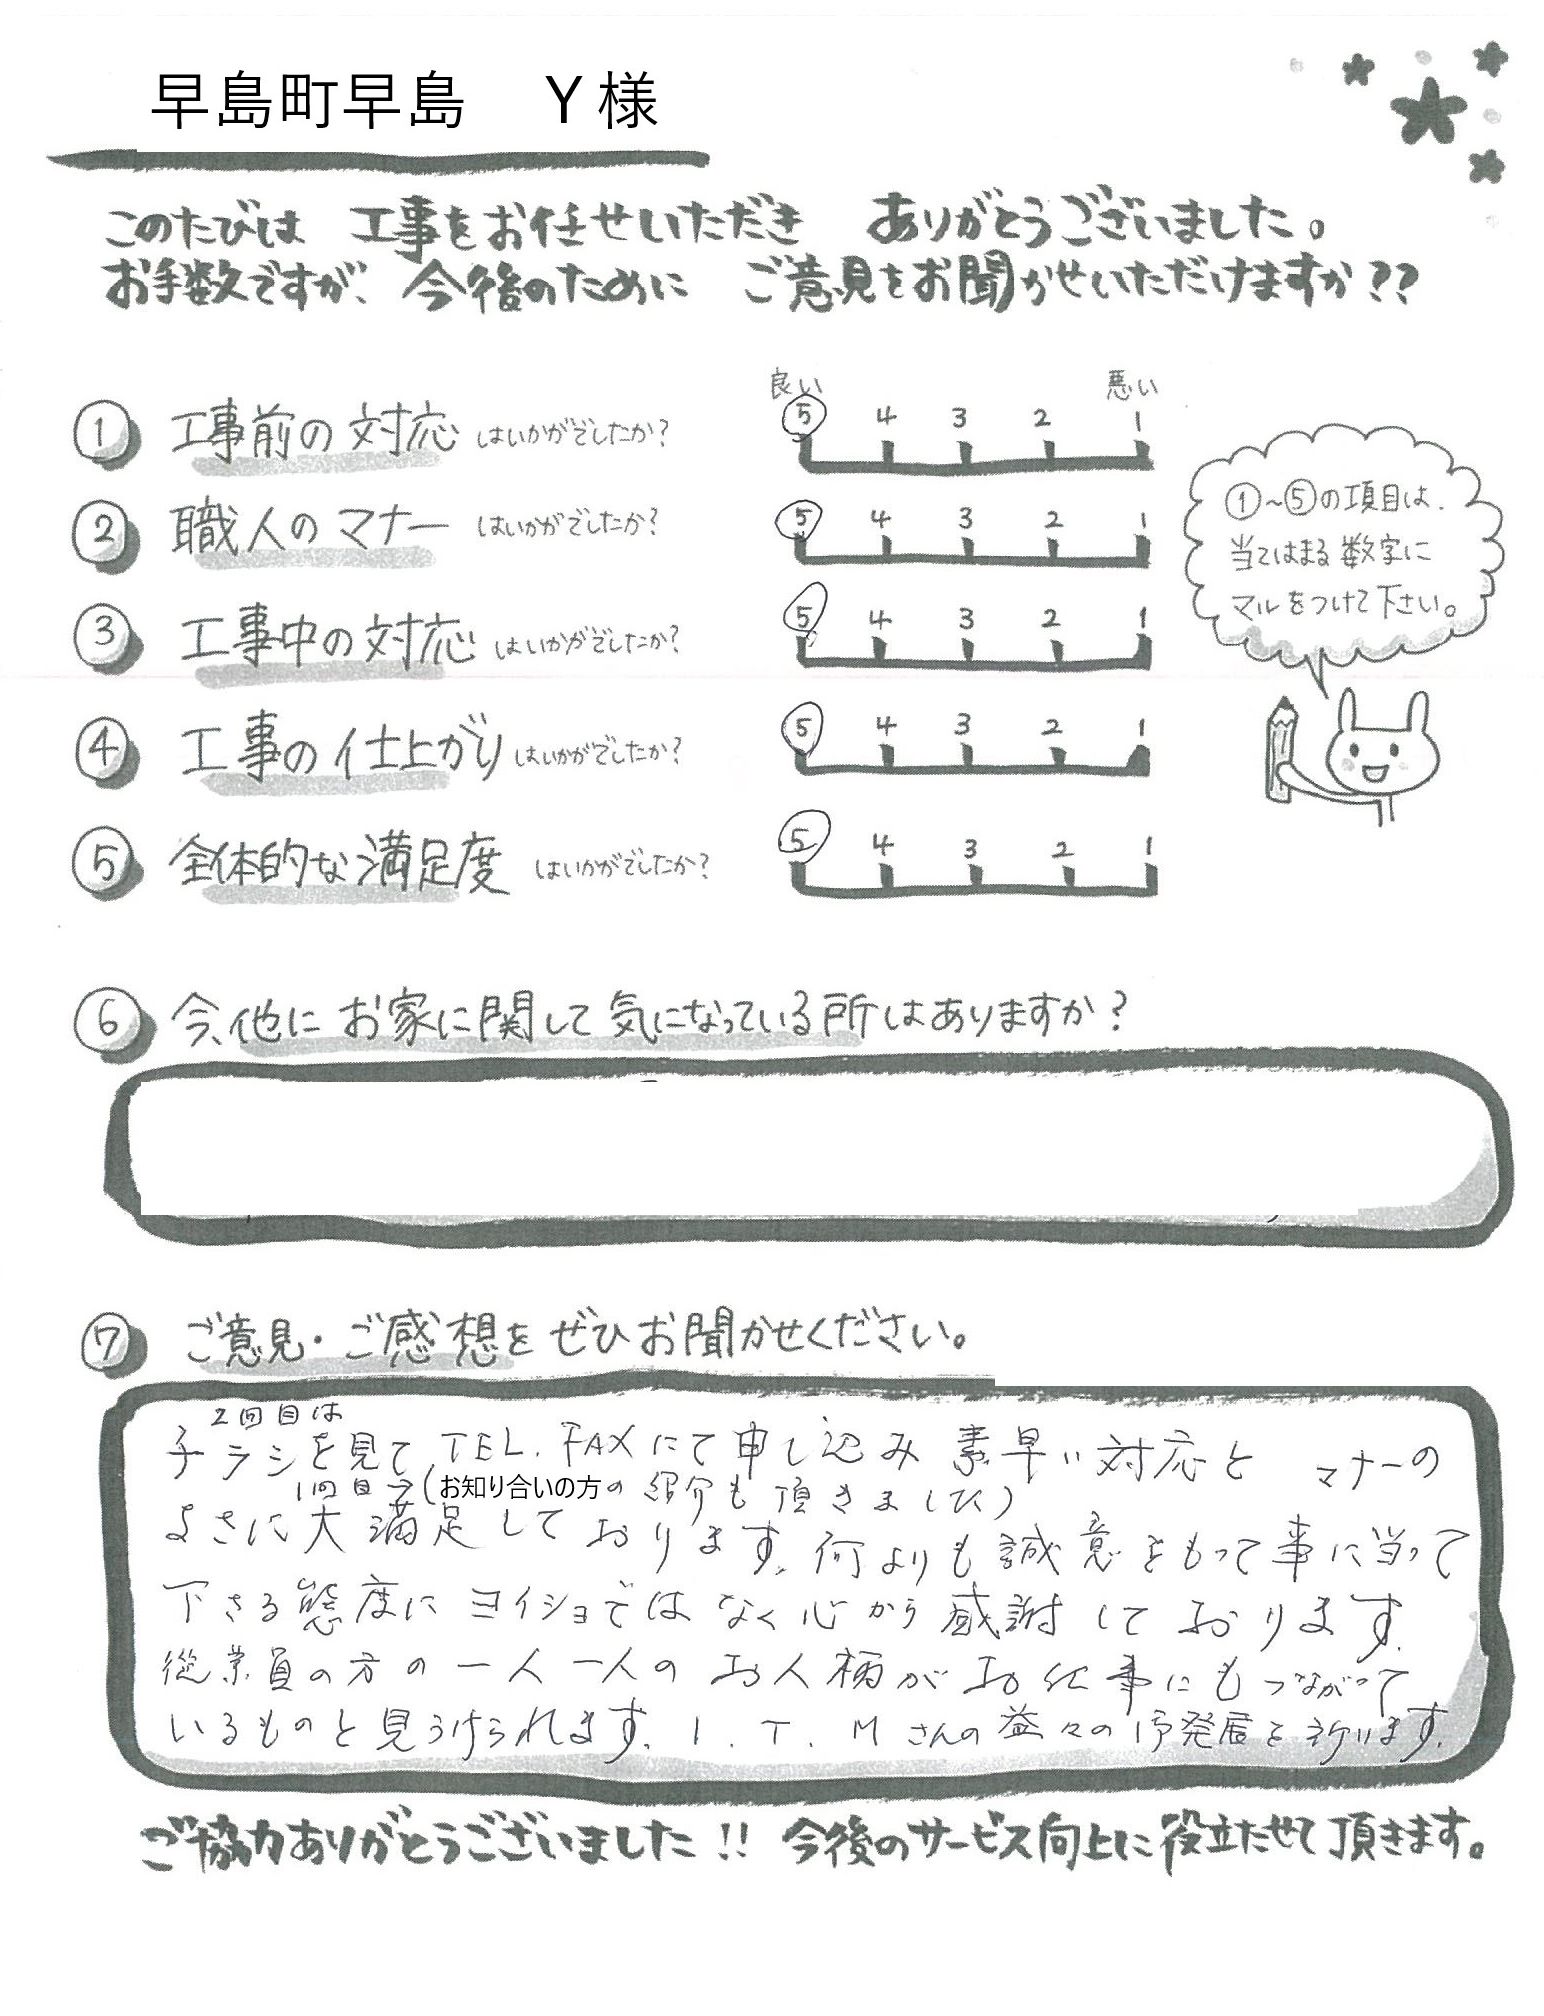 早島町早島　Y様
このたびは 工事をお任せいただき ありがとうございました。
お手数ですが、今後のために ご意見をお聞かせいただけますか??
良い 悪い
① 工事前の対応 はいかがでしたか? 5 4 3 2 1
② 職人のマナー はいかがでしたか? 5 4 3 2 1
③ 工事中の対応 はいかがでしたか? 5 4 3 2 1
④ 工事の仕上がり はいかがでしたか? 5 4 3 2 1
⑤ 全体的な満足度 はいかがでしたか? 5 4 3 2 1
①~⑤の項目は、
当てはまる数字に
マルをつけて下さい。
⑥ 今、他にお家に関して気になっている所はありますか?
⑦ ご意見・ご感想をぜひお聞かせください。
2回目は
チラシを見て TEL.FAXにて申し込み 素早い対応と マナーの
1回目 (お知り合いの方の紹介も頂きました)
よさに大満足しております。何よりも誠意をもって事に当って
下さる態度にヨイショではなく心から感謝しております。
従業員の方の一人一人のお人柄がお仕事にもつながって
いるものと見うけられます。I.T.Mさんの益々の御発展を祈ります。
ご協力ありがとうございました!! 今後のサービス向上に役立たせて頂きます。